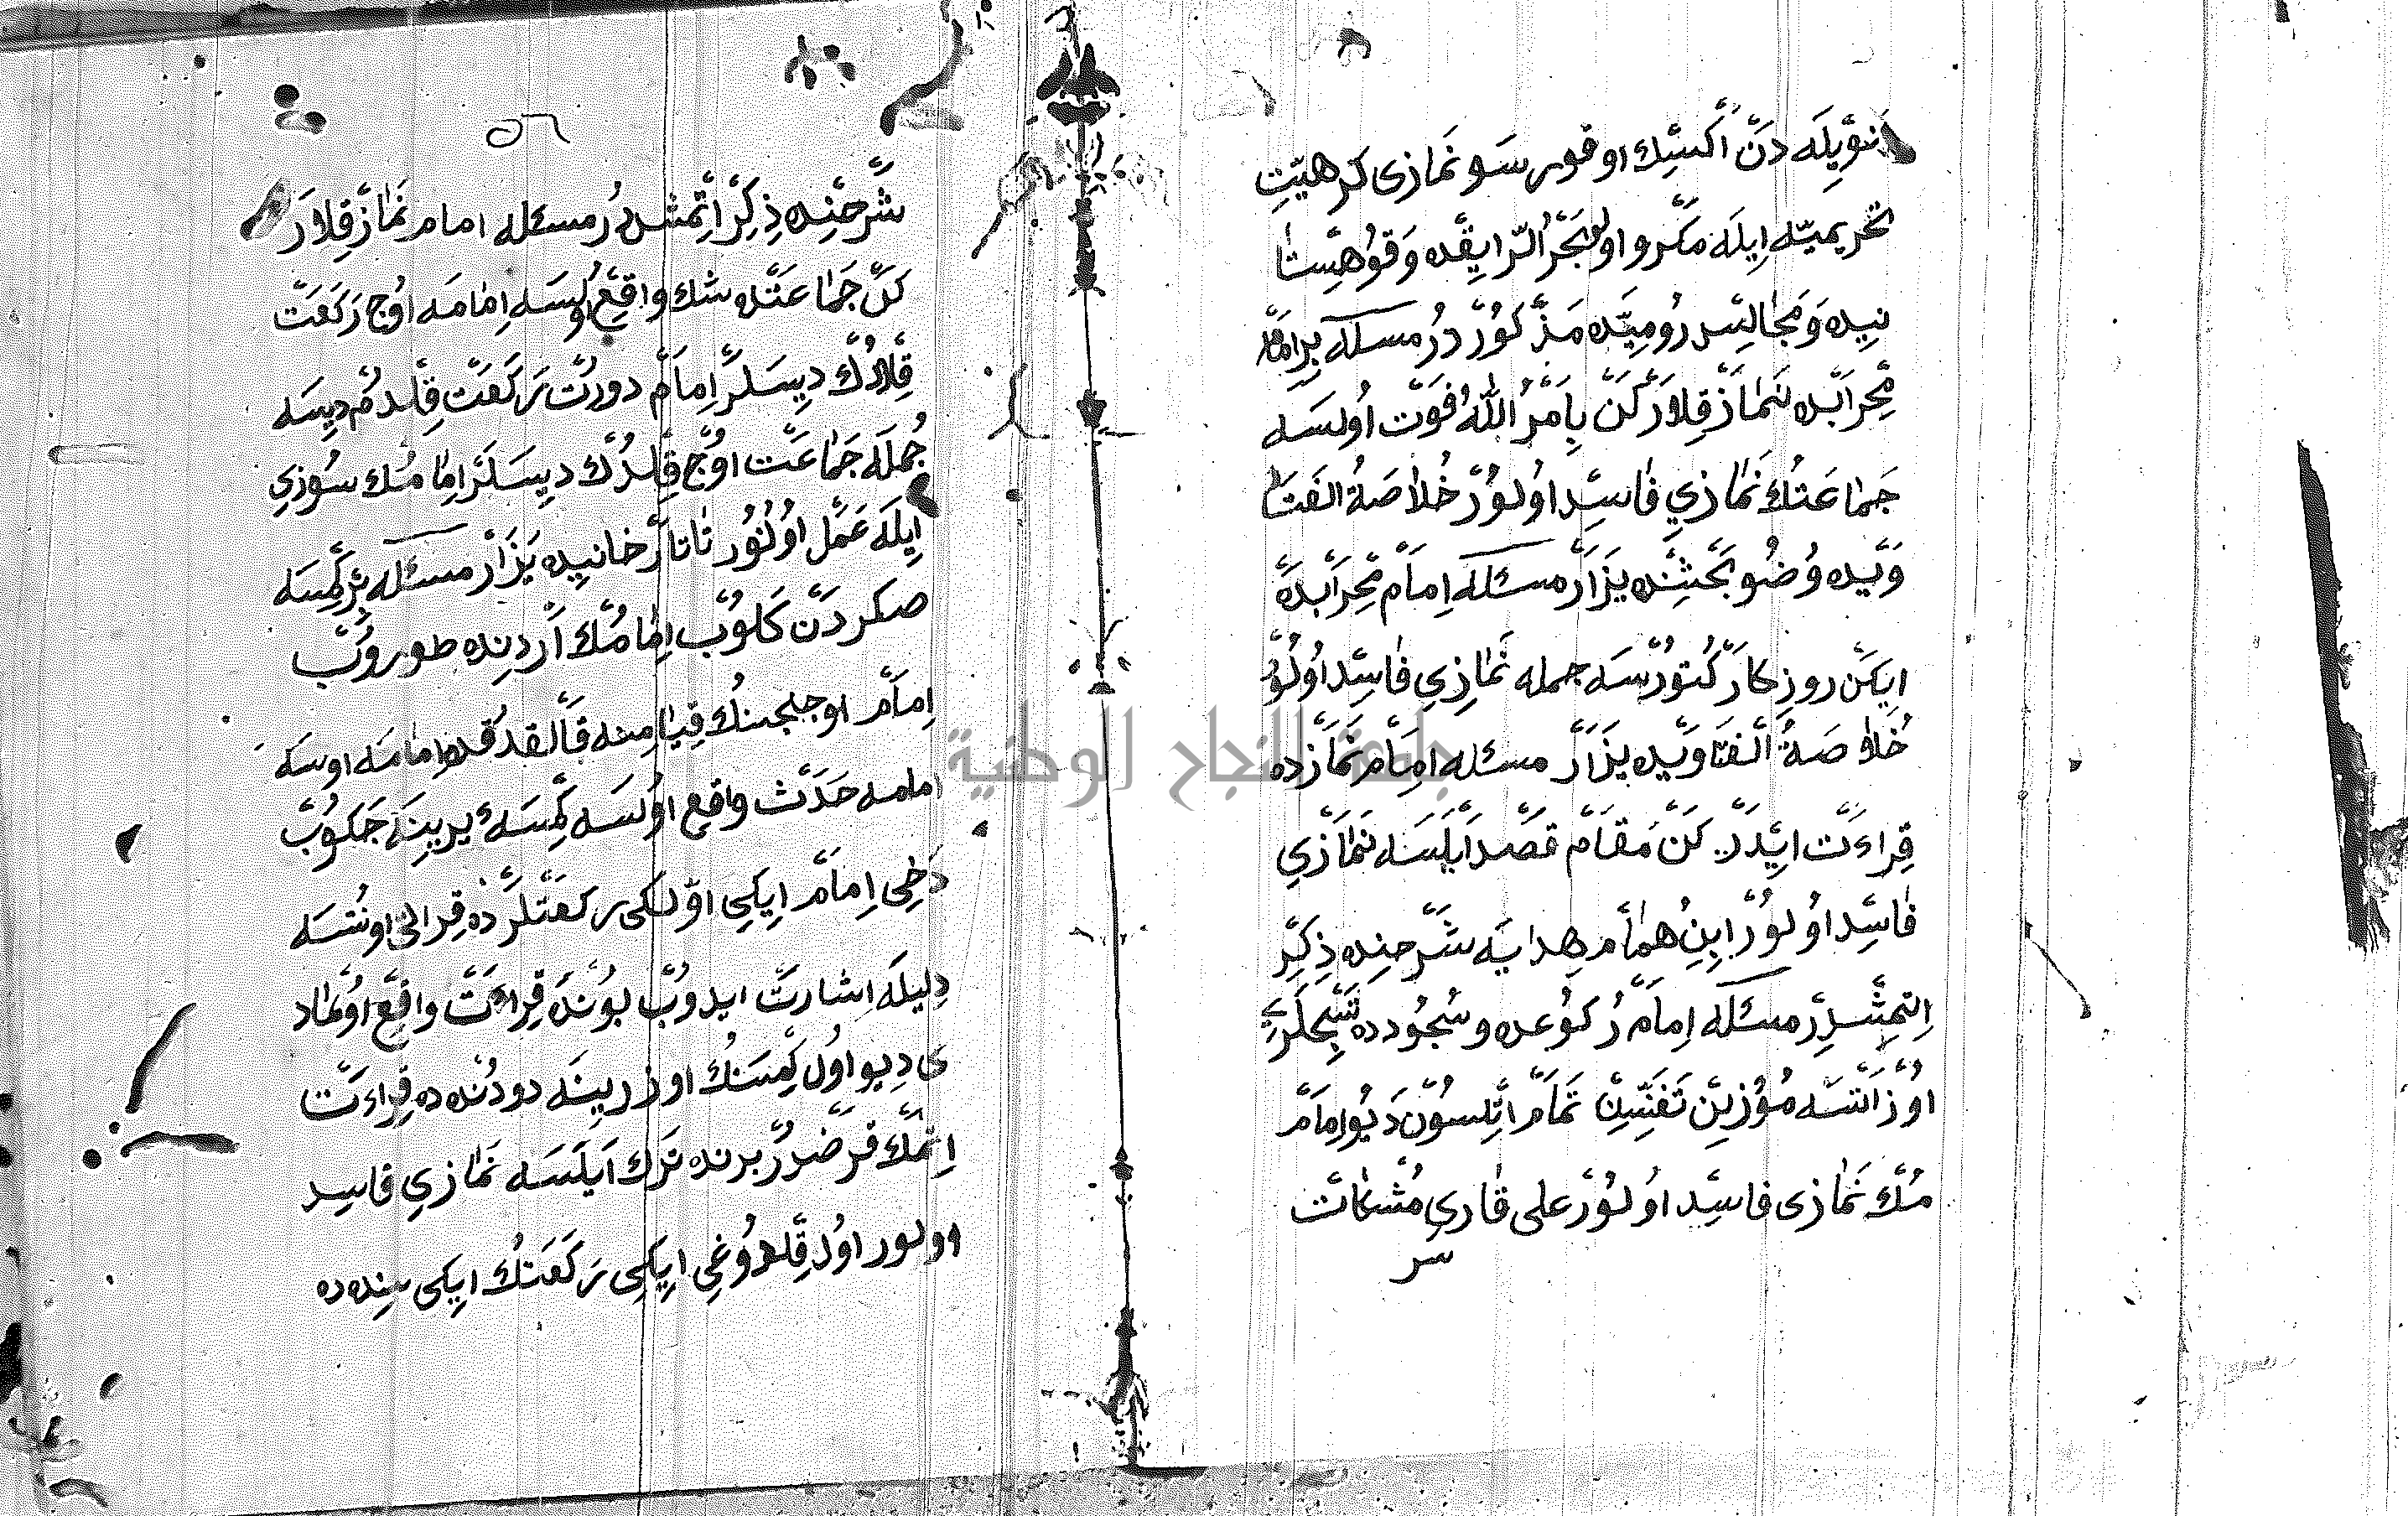 بويله دن اكسك اوقورسو نمازى كرهيت
تحريميه ايله مكروا اولور بحر الرايقده وقوهستا
نيده ومجالس روميده مذكور در مسئله بر امام
محرابده نماز قلاركن بامر الله فوت اولسه
جماعتك نمازي فاسد اولور خلاصة الفتا
ويده وضو بحثنده يزار مسئله امام محرابده
ايكن روزكار كتورسه جمله نمازي فاسد اولور
خلاصة الفتاويده يزار مسئله امام نمازده
قراءت ايدركن مقام قصد ايلسه نمازي
فاسد اولور ابن همام هدايه شرحنده ذكر
اتمشدر مسئله امام ركوعده وسجودده تسبيحلري
اوزاتسه مؤزين تفنين تمام اتلسون ديو امام
مك نمازى فاسد اولور على قاري مشكات
شر
٥٦
شرحنده ذكر اتمش در مسئله امام نماز قلار
كن جماعتده شك واقع اولسه امامه اوج ركعت
قلدك ديسلر امام دورت ركعت قلدم ديسه
جمله جماعت اوج قلدك ديسلر امامك سوزي
ايله عمل اولنور تاتار خانيده يزار مسئله بر كمسه
صكردن كلوب امامك آردنده طوروب
امام اوجنجنك قيامنه قالقدقده امامه اوسه
امامه حدث واقع اولسه كمسه ء يرينه جكوب
دخى امام ايكي اولكى ركعتلرده قرائى اونتسه
دليله اشارت ايدوب بونده قراءت واقع اولماد
ى ديو اول كمسنك اوزرينه دودنده ده قراءت
اتمك فرضدر برنده ترك ايلسه نمازي فاسد
اولور اول قلدوغي ايكى ركعتك ايكى سنده ده
جامعة النجاح الوطنية